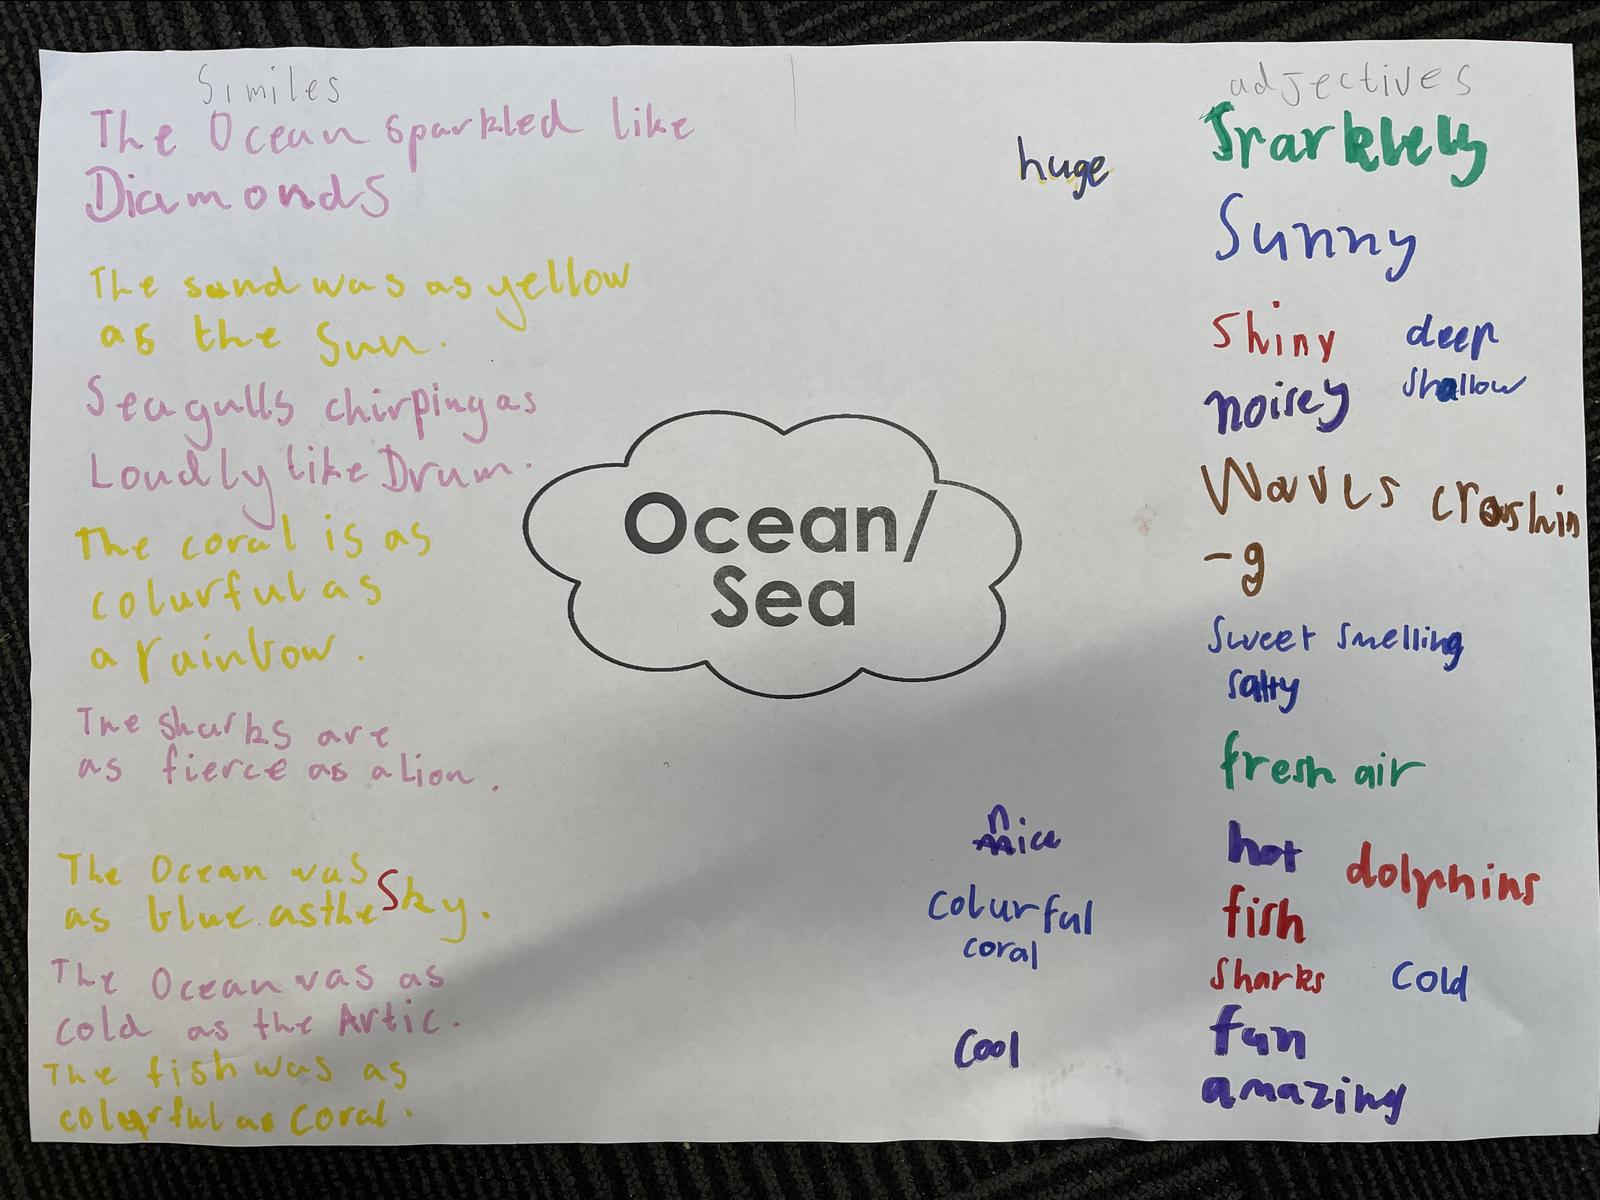 Similes
The Ocean sparkled like
Diamonds
The sand was as yellow
as the Sun.
Seagulls chirping as
Loudly like Drum.
The coral is as
colurful as
a rainbow.
The sharks are
as fierce as a Lion.
The Ocean was
as blue as the Sky.
The Ocean was as
cold as the Artic.
The fish was as
colourful as coral.
Ocean/
Sea
huge
nice
colurful
coral
cool
adjectives
Sparklely
Sunny
Shiny deep
noisey shallow
Waves crashin
-g
sweet smelling
salty
fresh air
hot dolphins
fish
Sharks Cold
fun
amazing